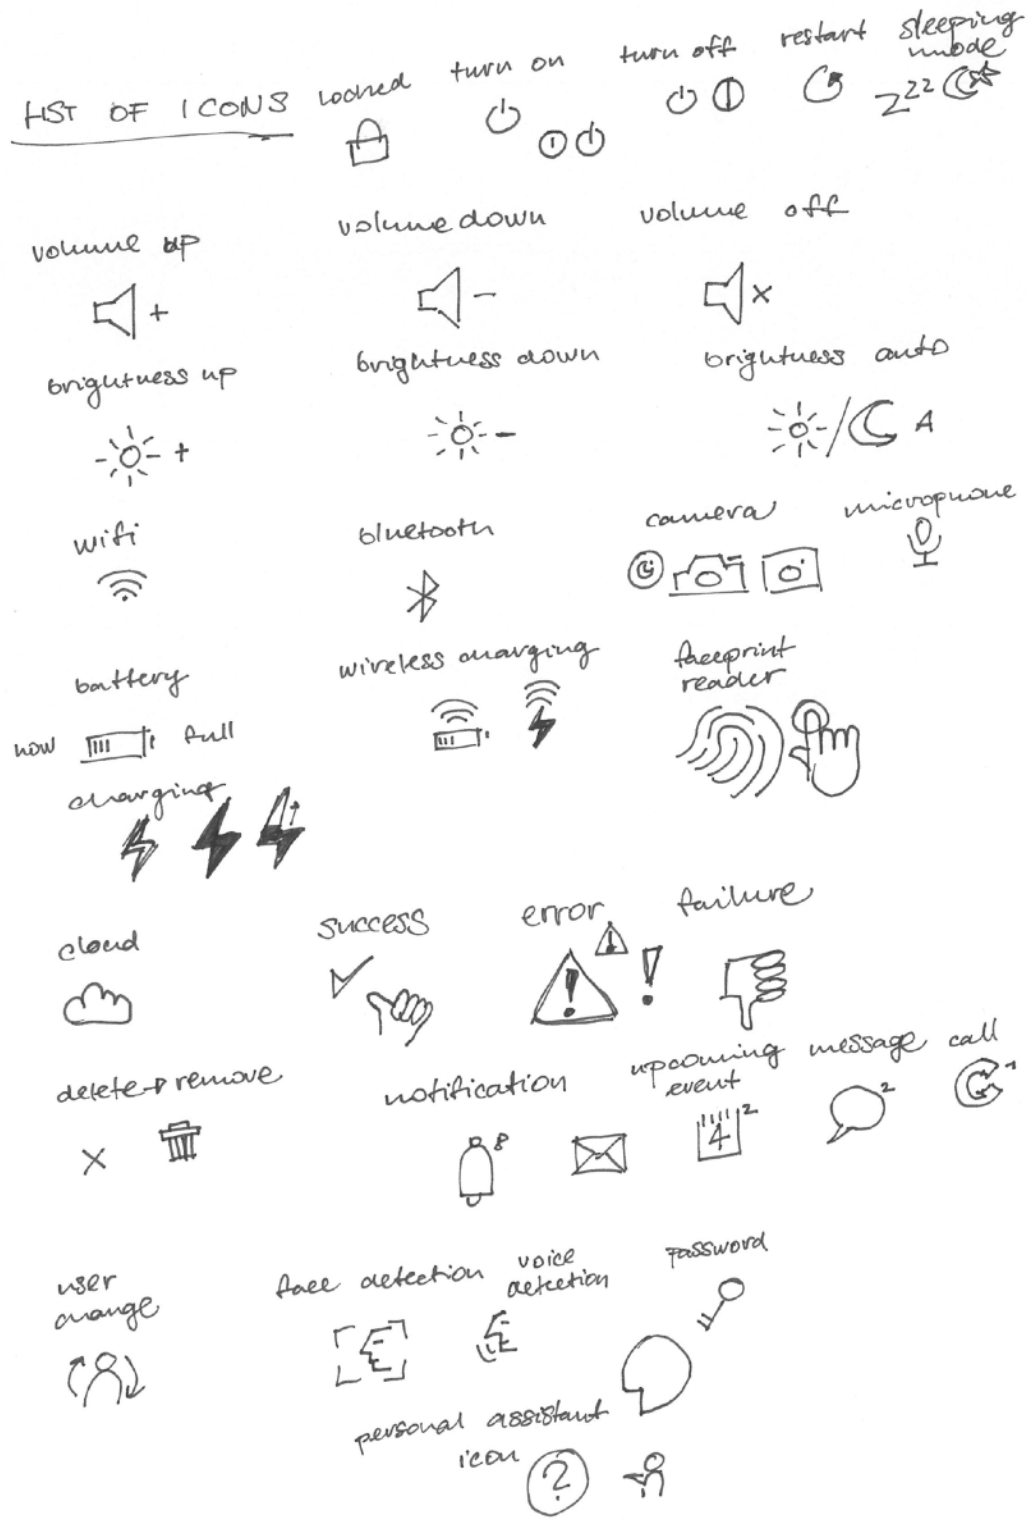 LIST OF ICONS
locked
turn on
turn off
restart
sleeping
mode
zzz
volume up
volume down
volume off
+
-
x
brightness up
brightness down
brightness auto
+
-
/ A
wifi
bluetooth
camera
microphone
battery
wireless charging
reader
now
full
charging
cloud
success
error
failure
!
!
!
delete → remove
notification
upcoming
event
message
call
x
8
4 2
2
1
user
change
face detection
voice
detection
password
personal assistant
icon
?